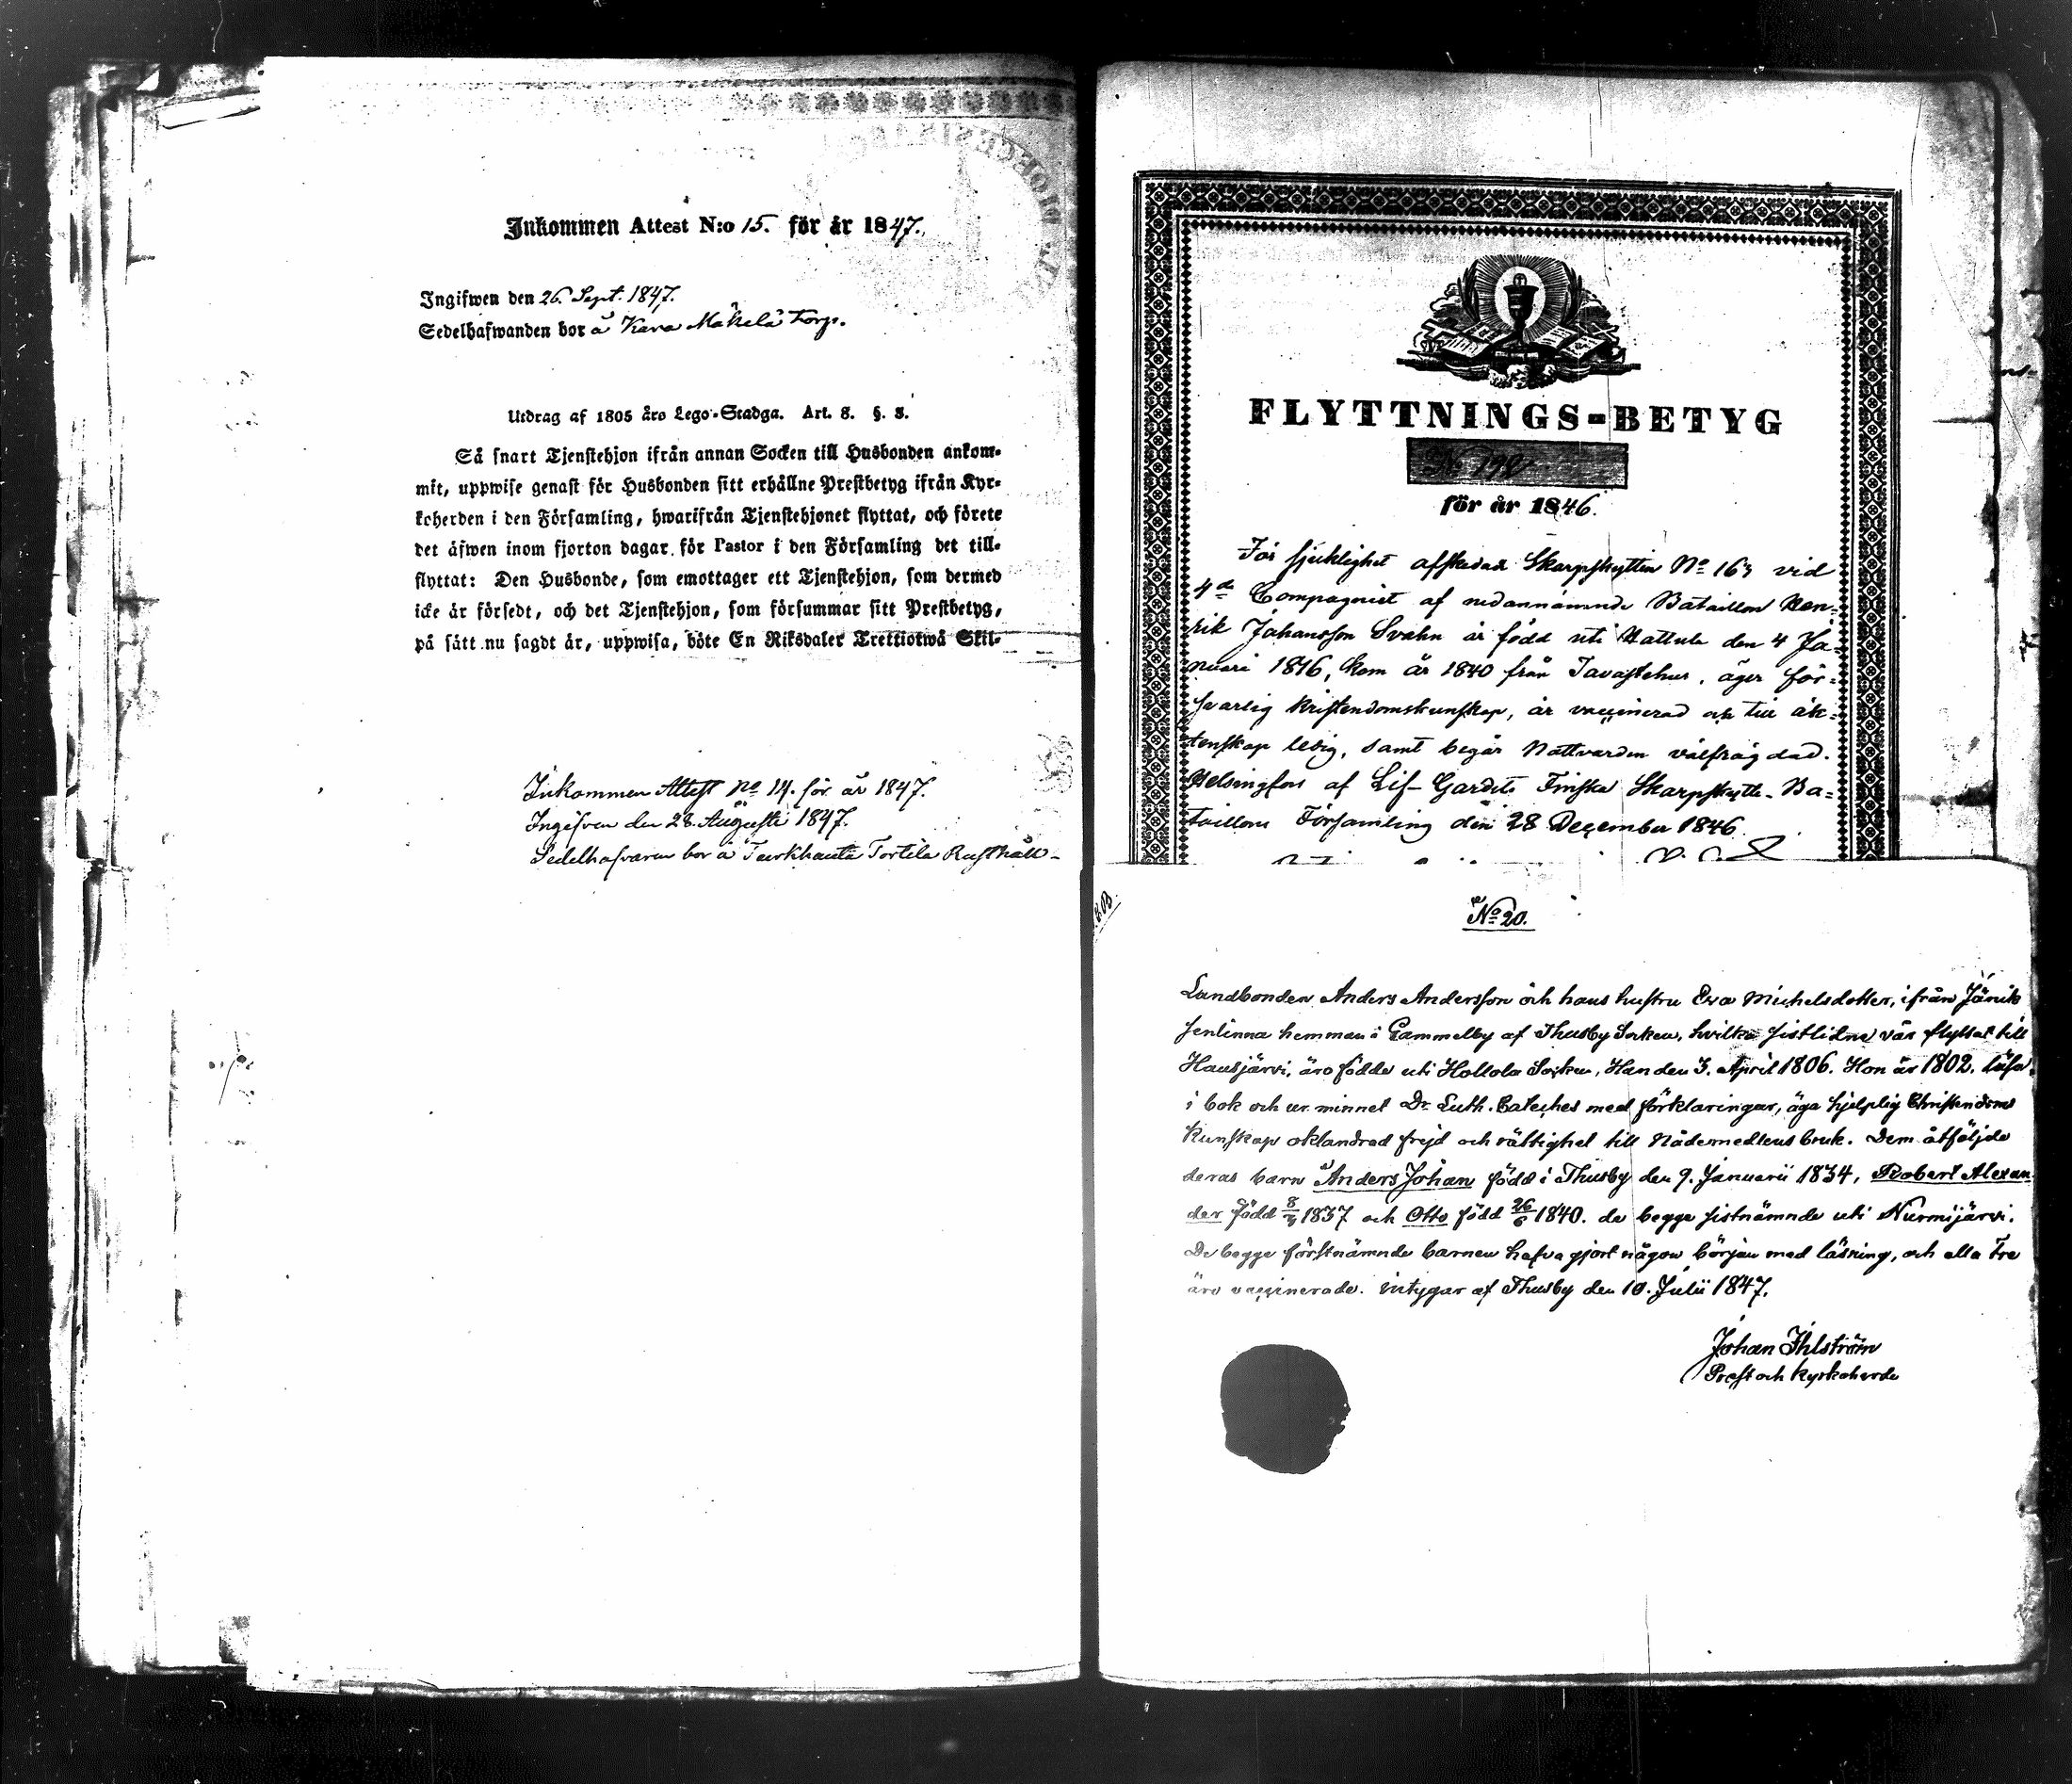 Inkommen Attest N:o 15. för år 1847.
Ingifwen den 26. Sept. 1847.
Sedelhafwanden bor å Kara Mäkelä Torp.
Utdrag af 1805 års Lego-Stadga. Art. 8. §. 3.
Så snart Tjenstehjon ifrån annan Socken till Husbonden ankom-
mit, uppwise genast för Husbonden sitt erhållne Prestbetyg ifrån Kyr-
koherden i den Församling, hwarifrån Tjenstehjonet flyttat, och förete
det äfwen inom fjorton dagar för Pastor i den Församling det till-
flyttat: Den Husbonde, som emottager ett Tjenstehjon, som dermed
icke är försedt, och det Tjenstehjon, som försummar sitt Prestbetyg,
på sätt nu sagdt är, uppwisa, böte En Riksdaler Trettiotwå Skil-
Inkommen Attest No 14. för år 1847.
Ingifven den 28. Augusti 1847.
Sedelhafvaren bor å Turkhauta Tortila Rusthåll-
FLYTTNINGS-BETYG
No 198
för år 1846.
För sjuklighet afskedad Skarpskytten No 163 vid
4de Compagniet af nedannämnde Bataillon Hen-
rik Johansson Svahn är född uti Hattula den 4 Ja-
nuari 1816, kom år 1840 från Tavastehus, äger för-
svarlig kristendomskunskap, är vaccinerad och till äk-
tenskap ledig, samt begår Nattvarden välfrägdad.
Helsingfors af Lif-Gardets Finska Skarpskytte-Ba-
taillons Församling den 28 December 1846.
No 20.
Landbonden Anders Andersson och hans hustru Eva Michelsdotter, ifrån Jänik
senlinna hemman i Gammelby af Thusby Socken, hvilka sistlidne vår flyttat till
Hausjärvi, äro födde uti Hollola Socken, Han den 3. April 1806. Hon år 1802. läsa
i bok och ur minnet Dr. Luth. Cateches med förklaringar, äga hjelplig Christendoms
Kunskap oklandrad frejd och rättighet till Nådemedlens bruk. Dem åtfölja
deras barn Anders Johan född i Thusby den 9. Januarii 1834, Robert Alexan
der född 8/3 1837 och Otto född 26/6 1840. de begge sistnämnde uti Nurmijärvi.
De begge förstnämnde barnen hafva gjort någon början med läsning, och alla tre
äro vaccinerade. intygar af Thusby den 10. Julii 1847.
Johan Ihlström
Prost och Kyrkoherde